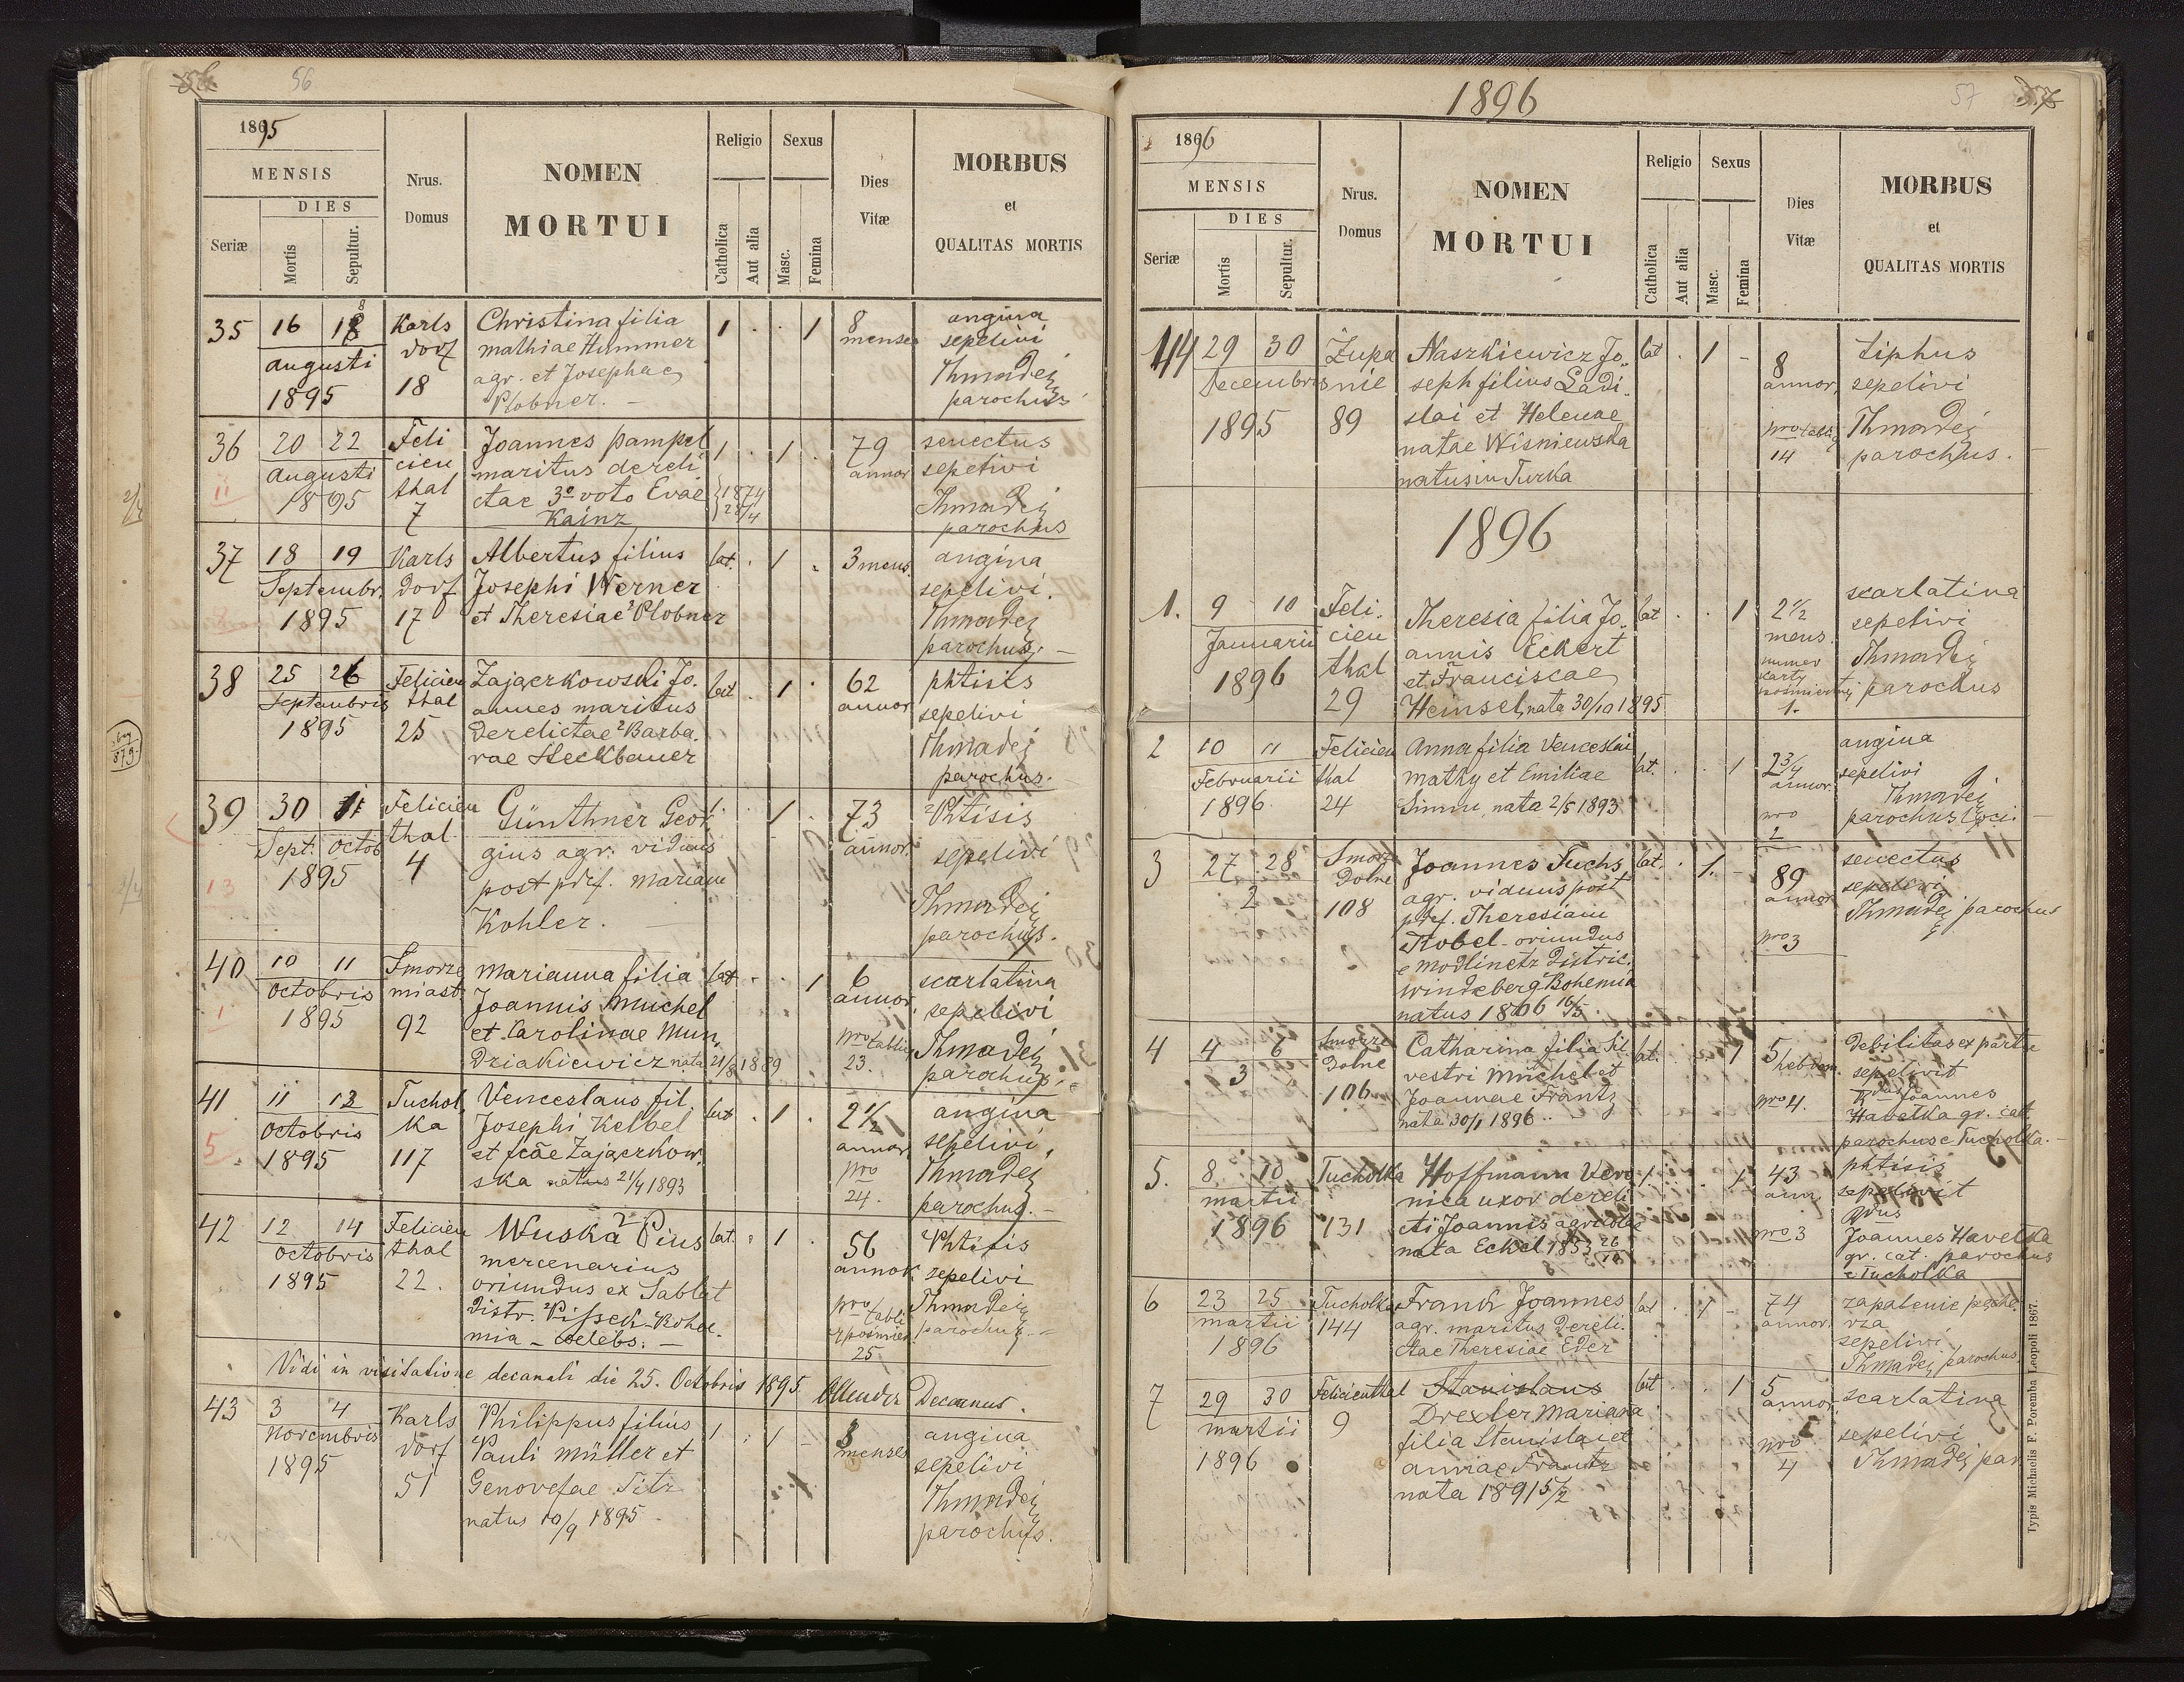 56
1895
MENSIS
DIES
Seriæ
Mortis
Sepultur.
Nrus.
Domus
NOMEN
MORTUI
Religio
Catholica
Aut alia
Sexus
Masc.
Femina
Dies
Vitæ
MORBUS
et
QUALITAS MORTIS
35 16 18 Karls Christina filia 1 . . 1 8 angina
augusti dorf mathiae Hummer menses sepelivi
1895 18 agr. et Josephae Thmadej
Plobner. parochus
36 20 22 Feli Joannes Pampel 1 . 1 . 79 senectus
augusti cien maritus dereli annor sepelivi
11 1895 thal ctae 3º voto Evae 1874 Thmadej
7 Kainz 28/4 parochus
37 18 19 Karls Albertus filius lat. . 1 . 3 mens. angina
Septembr. dorf Josephi Werner sepelivi.
1895 17 et Theresiae Plobner Thmadej
parochus
38 25 26 Felicien Zajączkowski Jo. lat . 1 . 62 phtisis
Septembris thal annes maritus annor sepelivi
1895 25 derelictae Barba. Thmadej
rae Heckbauer parochus.
39 30 1 Felicien Günthner Geor. 1. 1 . 73 Phtisis
Sept. Octob thal gius agr. viduus annor. sepelivi
13 1895 4 post pdef. Mariam Thmadej
Kohler. parochus.
40 10 11 Smorze Marianna filia lat . . 1 6 scarlatina
Octobris miast. Joannis Muchel annor. sepelivi
1 1895 92 et Carolinae Mun. nro tablic Thmadej
dziakiewicz nata 21/8 1889 23. parochus.
41 11 13 Tuchol Venceslaus fil lat . 1 . 2 1/2 angina
Octobris ka Josephi Kelbel annor. sepelivi,
5 1895 117 et fcae Zajączkow. nro Thmadej
ska natus 21/4 1893 24. parochus.
42 12 14 Felicien Wuska Pius lat. . 1 . 56 Phtisis
Octobris thal mercenarius annor. sepelivi
1895 22. oriundus ex Sablat nro tabli Thmadej
distr. Pissek-Bohe. parochus.
mia - Celebs. 25
Vidi in visitatione decanali die 25. Octobris 1895 Decanus.
43 3 4 Karls Philippus filius 1 . 1 - 3 angina
Novembris dorf Pauli Müller et menses sepelivi
1895 51 Genovefae Titz Thmadej
natus 10/9 1895 parochus.
57
1896
1896
MENSIS
DIES
Seriæ
Mortis
Sepultur.
Nrus.
Domus
NOMEN
MORTUI
Religio
Catholica
Aut alia
Sexus
Masc.
Femina
Dies
Vitæ
MORBUS
et
QUALITAS MORTIS
44 29 30 Żupa Naszkiewicz Jo. lat . 1 - 8 tiphus
Decembris nie seph filius Ladi. annor. sepelivi
1895 89 slai et Helenae nro tablicy Thmadej
natae Wisniewska 14 parochus.
natus in Turka
1896
1. 9 10 Feli. Theresia filia Jo. lat . . 1 2 1/2 scarlatina
Januarii cien annis Eckert mens. sepelivi
1896 thal et Franciscae numer karty Thmadej
29 Heinsel, nata 30/10 1895 pośmiertnej 1. parochus
2 10 11 Felicien Anna filia Venceslai lat. . . 1 2 3/4 angina
Februarii thal Mathy et Emiliae annor. sepelivi
1896. 24 Simm, nata 2/5 1893 nro Thmadej
2 parochus loci.
3 27 28 Smorze Joannes Fuchs lat. . 1. - 89 senectus
2 Dolne agr. viduus post annor sepelivi
108 pdef. Theresiam Thmadej parochus
Kobel - oriundus nro 3
e Modlinetz distric.
Windeberg Bohemia
natus 1806 16/5.
4 4 6 Smorze Catharina filia Sil. lat. . . 1 5 Debilitas ex partu
3 Dolne vestri Müchel et hebdom. sepelivit
106 Joannae Frantz nro 4. Joannes
nata 30/1 1896. Havełka gr. cat.
parochus e Tucholka.
5. 8 10 Tucholka Hoffmann Vero 1. . . 1 43 phtisis
martii nica uxor dereli ann. sepelivit
1896 131 cti Joannis agricolae nro 3 Joannes Havełka
nata Eckel 1853 gr. cat. parochus
e Tucholka
6 23 25 Tucholka Frank Joannes lat . 1 - 74 zapalenie pęche.
martii 144 agr. maritus dereli. annor. rza
1896 ctae Theresiae Eder sepelivi
Thmadej parochus
7 29 30 Felicienthal Stanislaus lat . . 1 5 scarlatina
martii 9 Drexler Mariana annor. sepelivi
1896 filia Stanislai et nro Thmadej par
annae Frantz 4
nata 1891 5/2
Typis Michaelis F. Poremba Leopoli 1867.